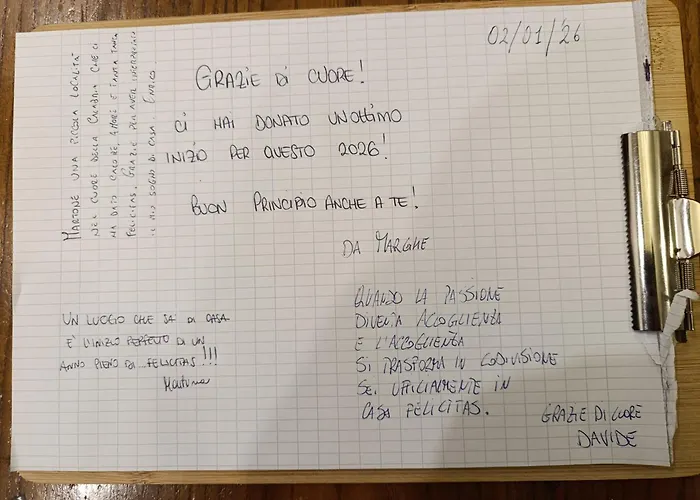 02/01/'26
GRAZIE DI CUORE!
CI HAI DONATO UN OTTIMO
INIZIO PER QUESTO 2026!
BUON PRINCIPIO ANCHE A TE!
DA MARGHE
MARTONE UNA PICCOLA LOCALITÀ
NEL CUORE DELLA CALABRIA CHE CI
HA DATO CALORE, AMORE E TANTA TANTA
FELICITAS. GRAZIE PER AVER
IL MIO SOGNO DI CASA. ENRICO
UN LUOGO CHE SA DI CASA
E' L'INIZIO PERFETTO DI UN
ANNO PIENO DI... FELICITAS!!!
Martina
QUANDO LA PASSIONE
DIVENTA ACCOGLIENZA
E L'ACCOGLIENZA
SI TRASFORMA IN CODIVISIONE
SEI UFFICIALMENTE IN
CASA FELICITAS.
GRAZIE DI CUORE
DAVIDE